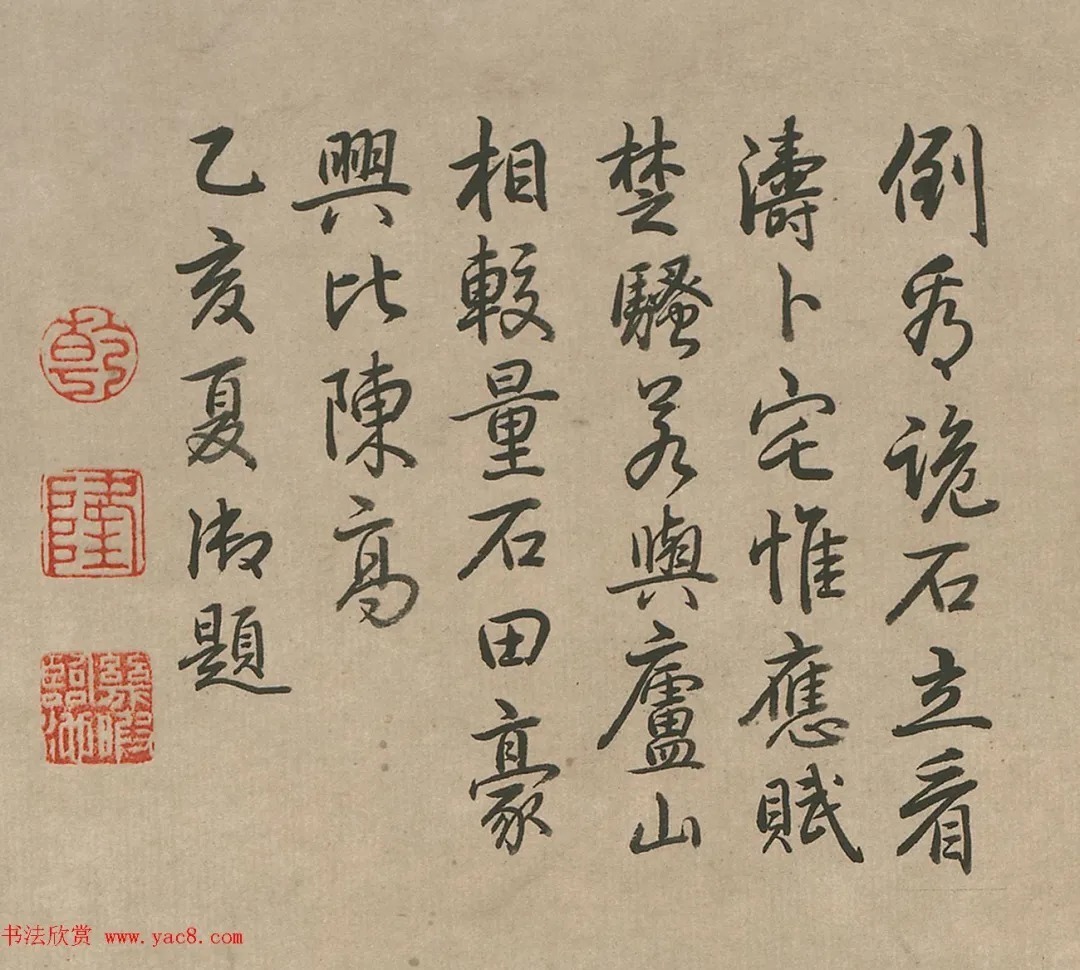 倒詭石立看
濤卜宅惟應賦
楚騷若與廬山
相較量石田豪
興比陳高
乙亥夏御題
乾
隆
幾暇臨池
书法欣赏 www.yac8.com